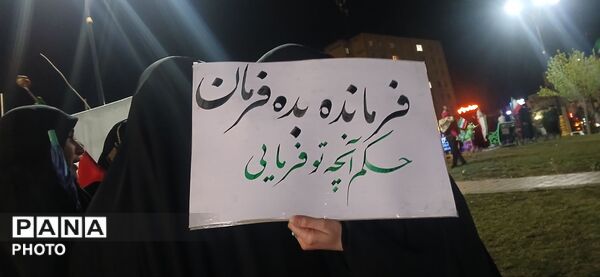 فرمانده بده فرمان
حکم آنچه تو فرمایی
PANA
PHOTO